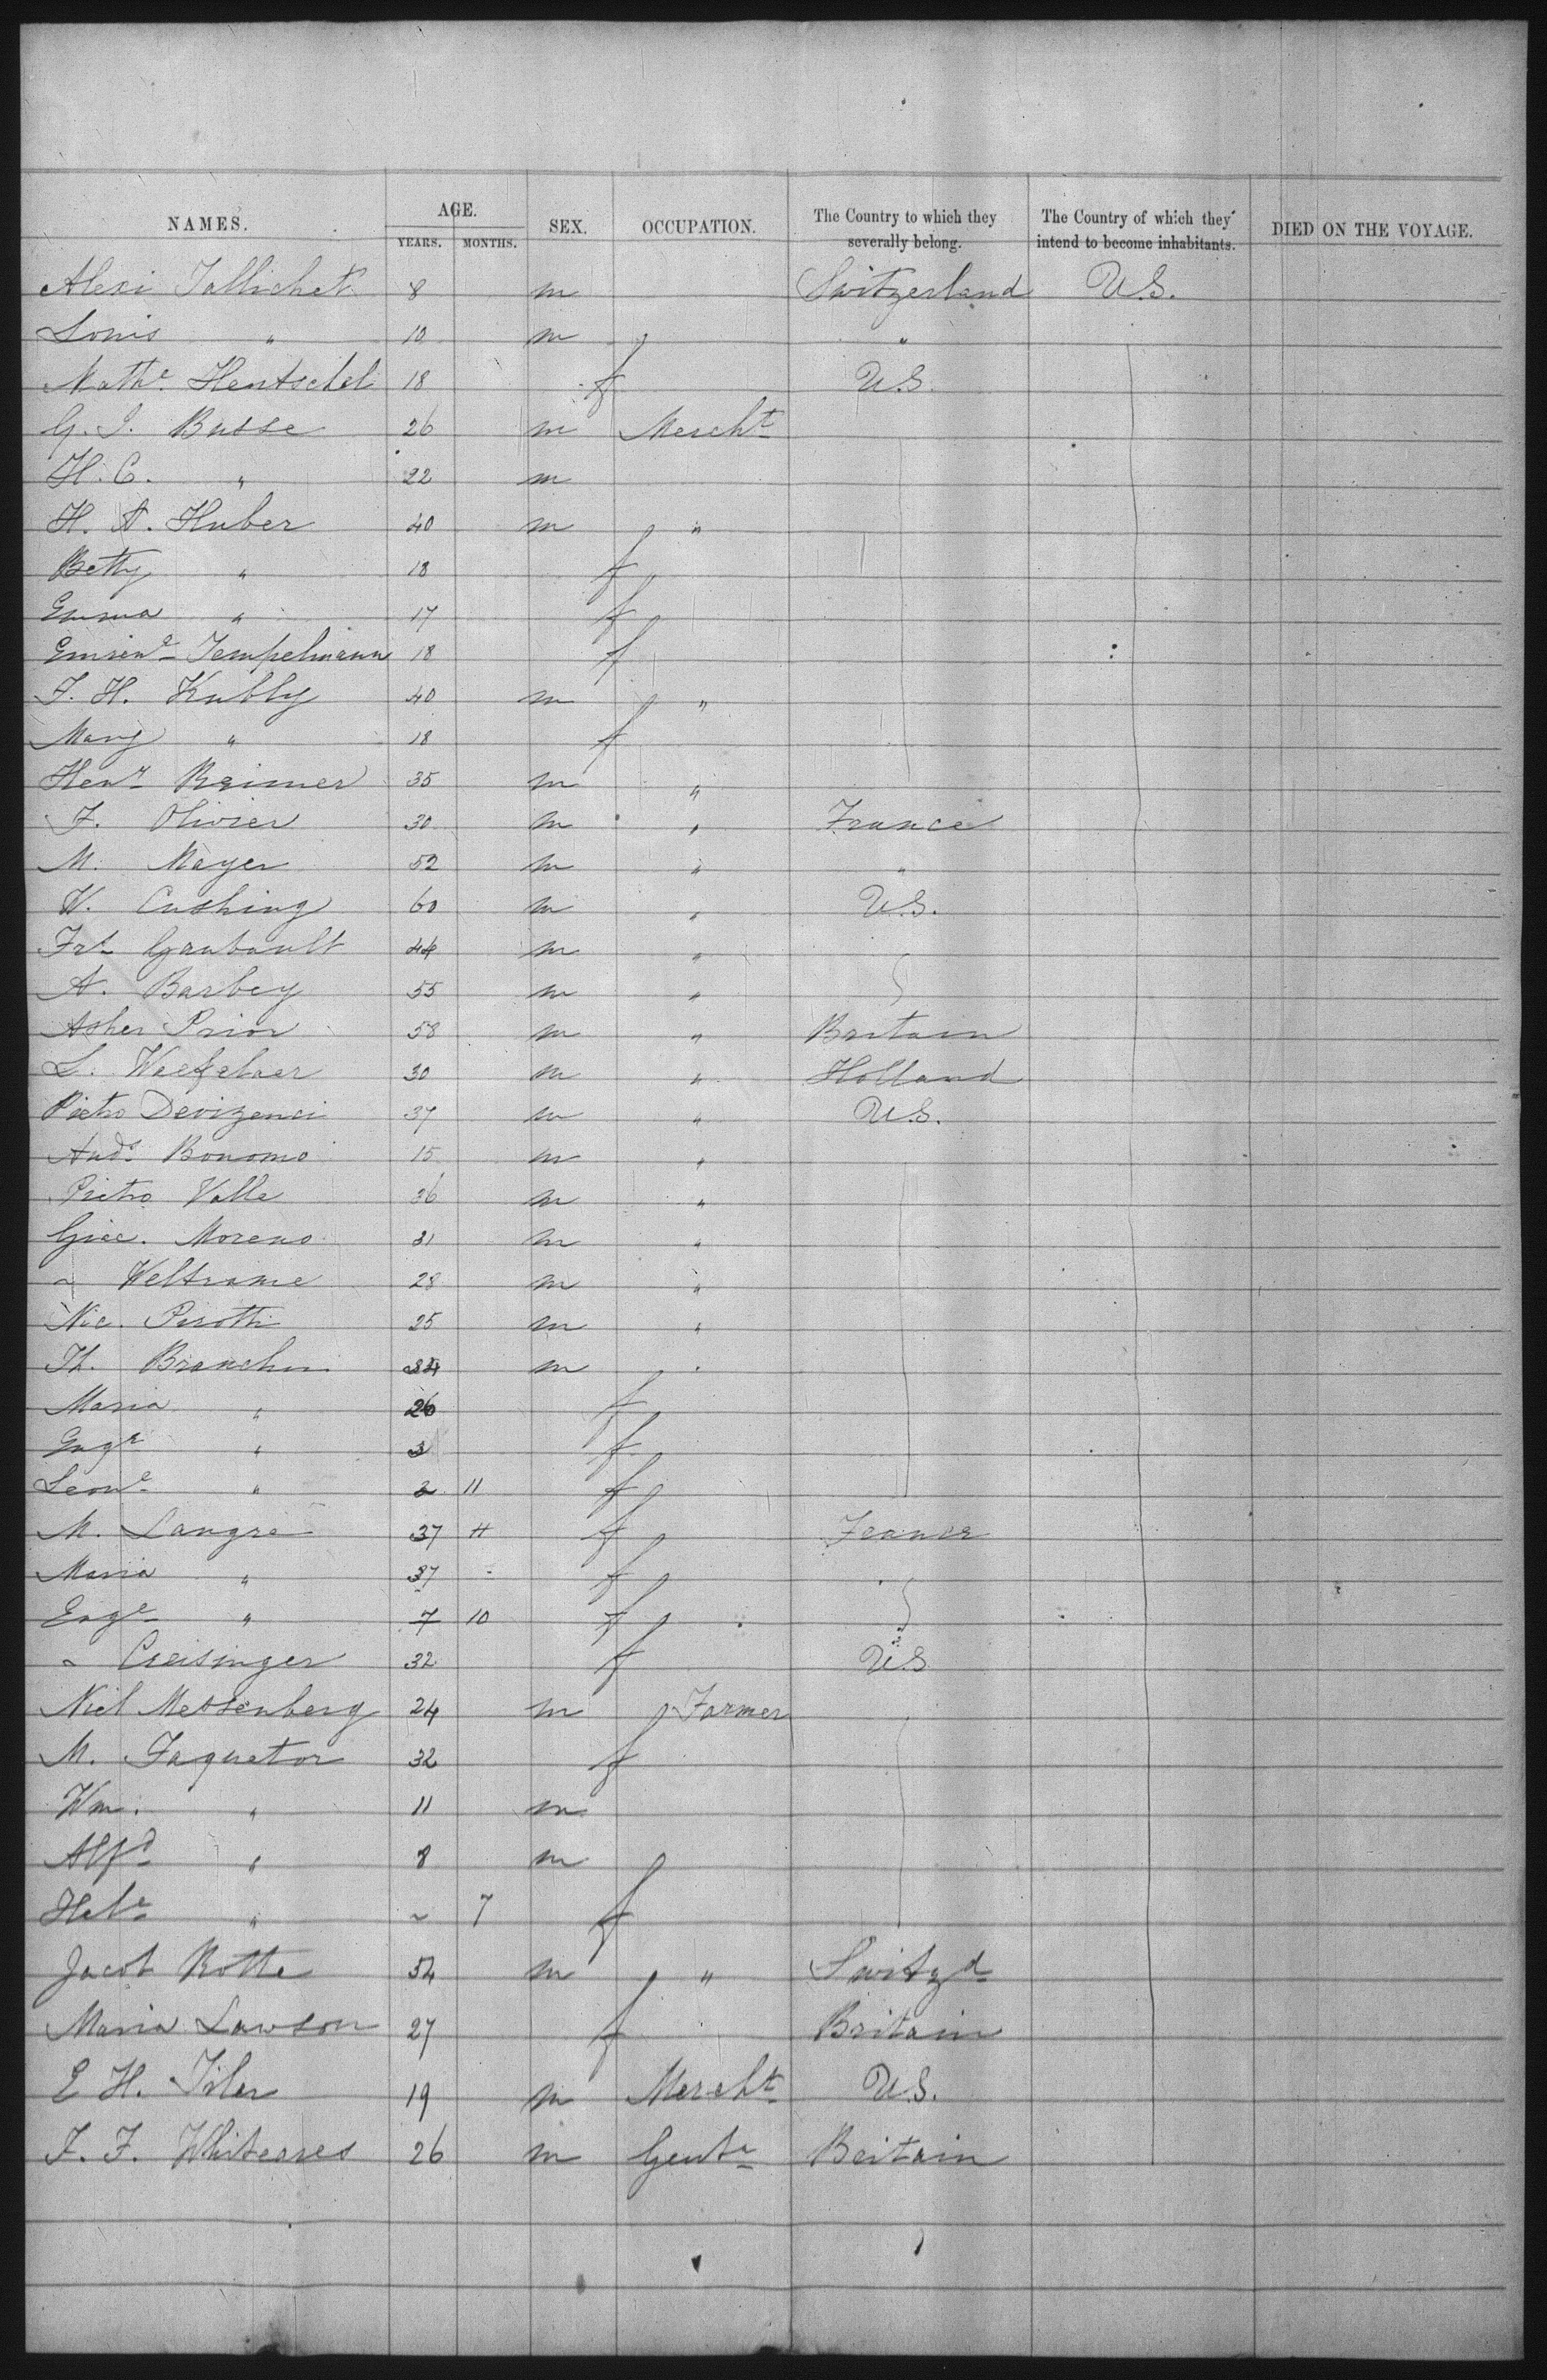 NAMES. AGE. SEX. OCCUPATION. The Country to which they severally belong. The Country of which they intend to become inhabitants. DIED ON THE VOYAGE.
YEARS. MONTHS.
Alexi Tallichet 8 m Switzerland U.S.
Louis " 10 m "
Mathe Hentschel 18 f U.S.
G. J. Busse 26 m Mercht
H. C. " 22 m
H. A. Huber 40 m "
Betty " 18 f
Emma " 17 f
Tempelmann 18 f
J. H. Kubly 40 m "
Mary " 18 f
Henry Reimer 35 m "
F. Olivier 30 m " France
M. Mayer 52 m " "
W. Cushing 60 m " U.S.
Frs Gaubault 44 m "
A. Barbey 55 m "
Asher Prior 58 m " Britain
L. 30 m " Holland
Pietro Devizenci 37 m " U.S.
Andr Bonomo 15 m "
Pietro Valle 36 m "
Giac. Moreno 31 m "
" Veltrame 28 m "
Nic. Pirotti 25 m "
Th. Branchi 34 m "
Maria " 26 f
Euge " 3 f
Leone " 2 11 f
M. Langre 37 f France
Maria " 37 - f
Euge " 7 10 f
" Creisinger 32 f U.S.
Niel Messenberg 24 m Farmer
M. Faquetor 32 f
Wm. " 11 m
Alfd " 8 m
Hele " ~ 7 f
Jacob Rotte 54 m " Switzd
Maria Lawson 27 f Britain
E H. Isler 19 m Mercht U.S.
J. F. 26 m Gentn Britain